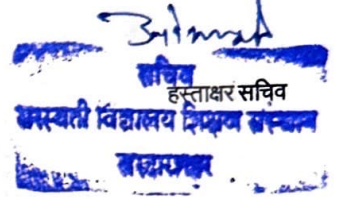 सचिव
हस्ताक्षर सचिव
सरस्वती विद्यालय शिक्षक संस्थान